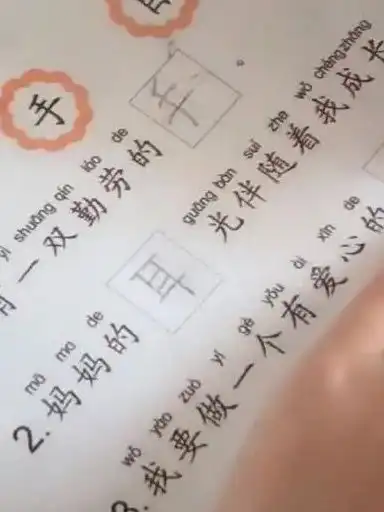 手
yì shuāng qín láo de
一双勤劳的
mā ma de guāng bàn suí zhe wǒ chéngzhǎng
2. 妈妈的耳光伴随着我成长
wǒ yào zuò yí gè yǒu ài xīn de
3. 我要做一个有爱心的